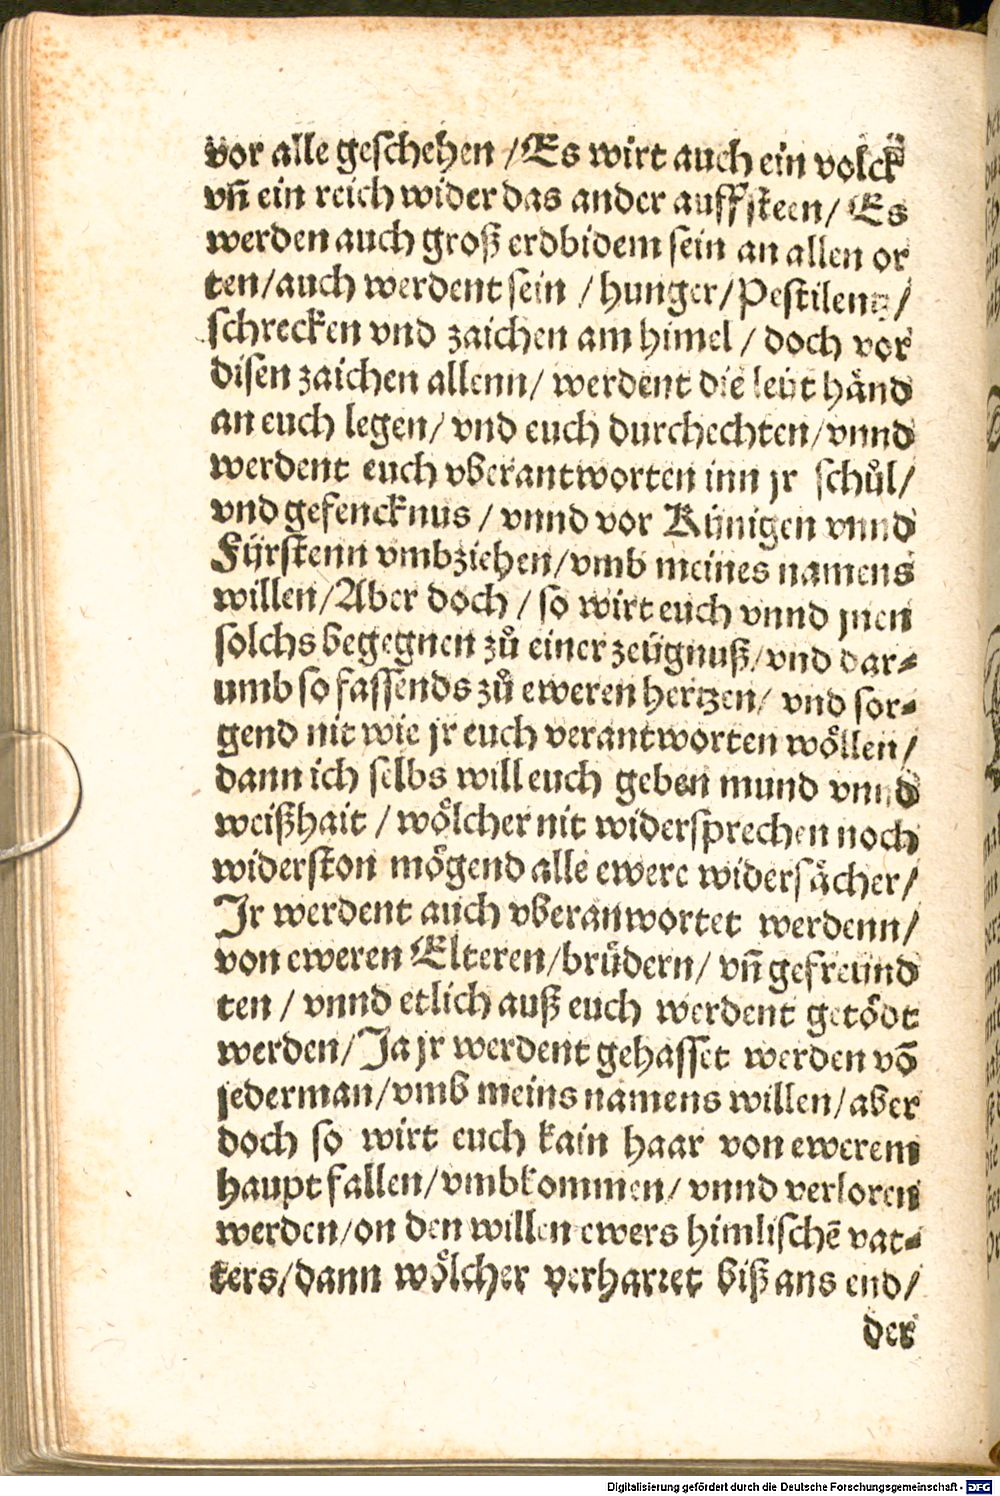 vor alle geschehen /Es wirt auch ein volck
vñ ein reich wider das ander auffsteen/ Es
werden auch groß erdbidem sein an allen or
ten/auch werdent sein /hunger/Pestilentz/
schrecken vnd zaichen am himel / doch vor
disen zaichen allenn/ werdent die leüt händ
an euch legen/ vnd euch durchechten/vnnd
werdent euch vberantworten inn jr schůl/
vnd gefencknus / vnnd vor Künigen vnnd
Fürstenn vmbziehen/vmb meines namens
willen/Aber doch / so wirt euch vnnd jnen
solchs begegnen zů einer zeügnuß/vnd dar⸗
umb so fassends zů eweren hertzen/ vnd sor⸗
gend nit wie jr euch verantworten wöllen/
dann ich selbs will euch geben mund vnnd
weißhait / wölcher nit widersprechen noch
widerston mögend alle ewere widersächer/
Jr werdent auch vberanwortet werdenn/
von eweren Elteren/brüdern/ vñ gefreünd
ten / vnnd etlich auß euch werdent getödt
werden/Ja jr werdent gehasset werden võ
jederman/vmb meins namens willen/aber
doch so wirt euch kain haar von ewerem
haupt fallen/vmbkommen/ vnnd verloren
werden/on den willen ewers himlischẽ vat⸗
ters/dann wölcher verharret biß ans end/
der
Digitalisierung gefördert durch die Deutsche Forschungsgemeinschaft - DFG